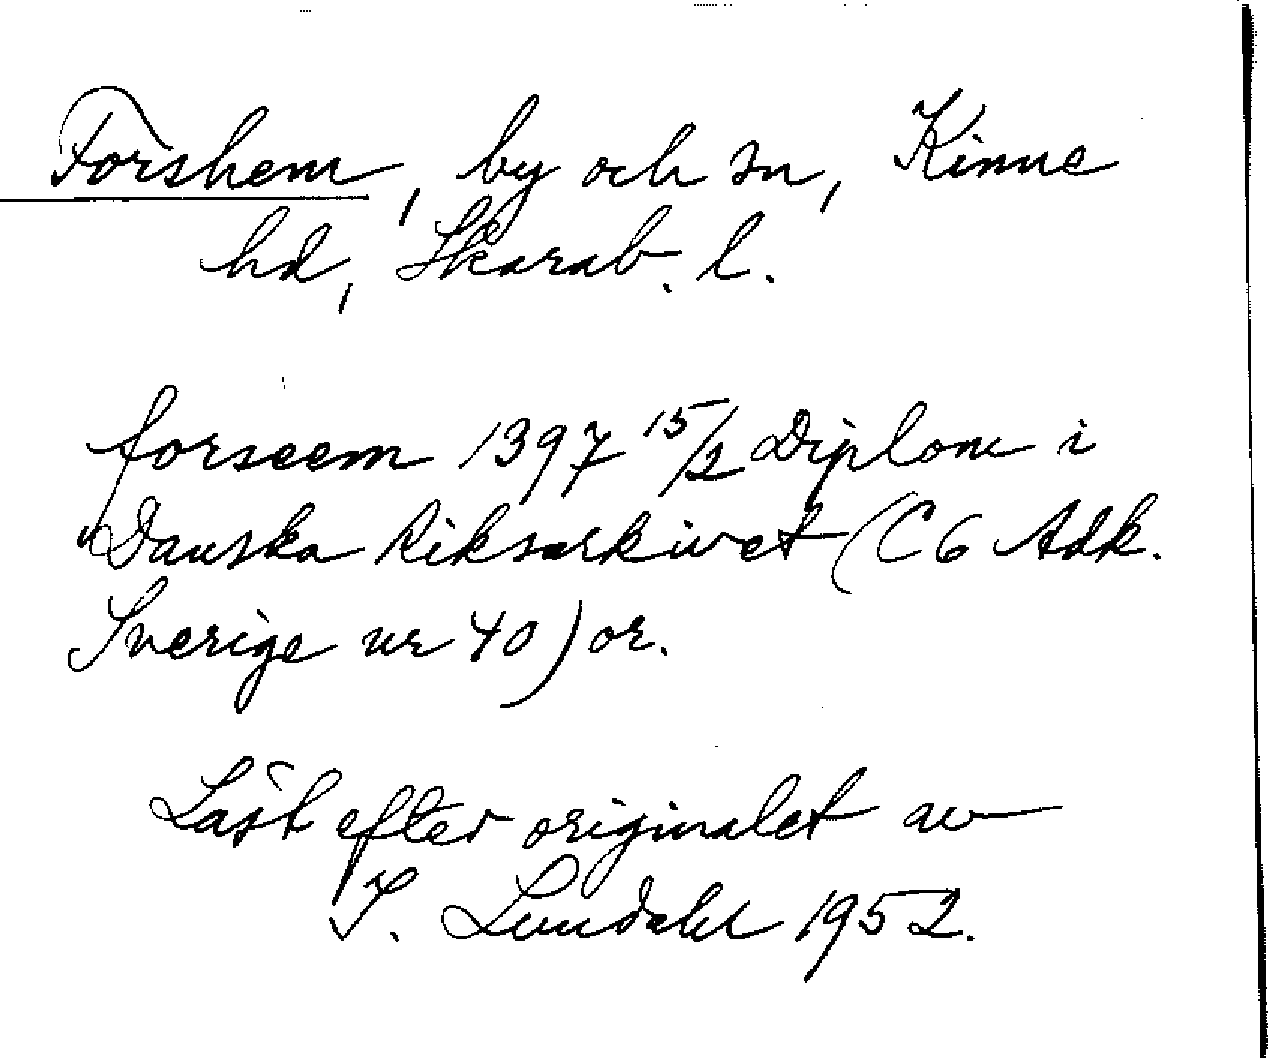 Forshem, by och sn, Kinne
hd, Skarab. l.
forseem 1397 15/2 Diplom i
Danska Riksarkivet (C6 Adk.
Sverige nr 40) or.
Läst efter originalet av
I. Lundahl 1952.